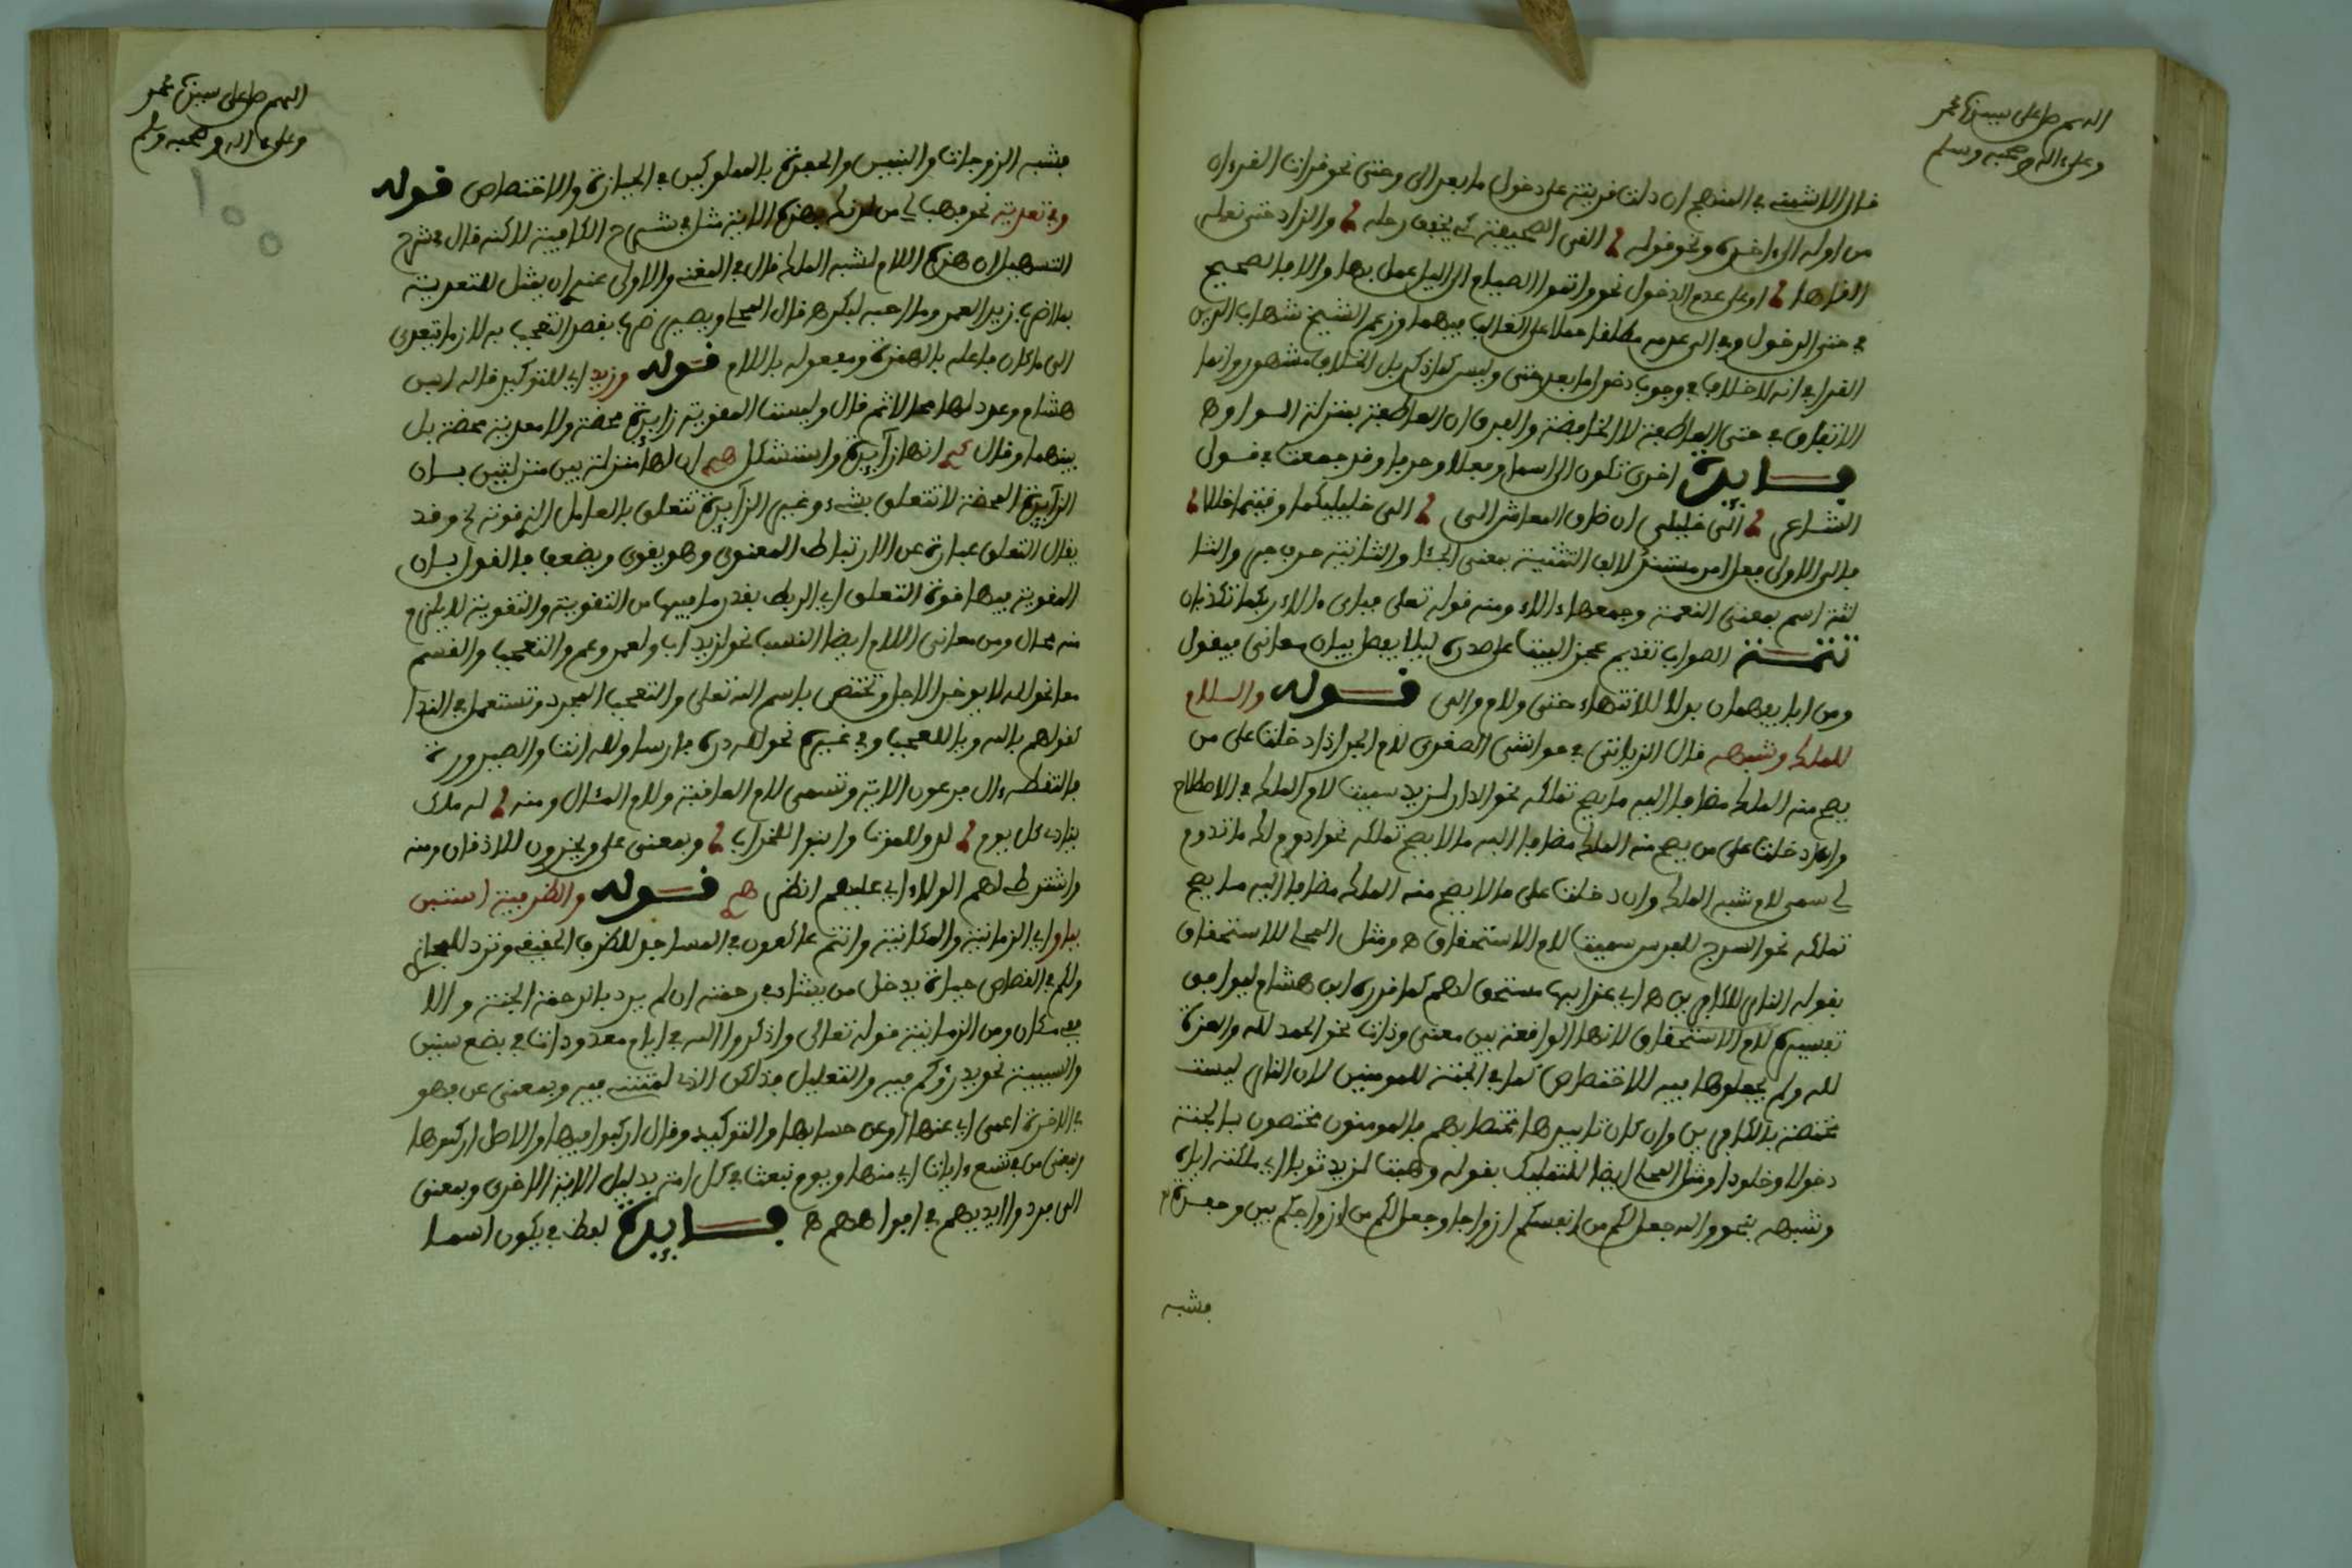 اللهم صل على سيدنا محمد
وعلى ءاله وصحبه وسلم
قال الاشمنى في المنهج ان دلت قرينة على دخول ما بعد الى وحتى نحو قرات القرءان
من اوله الى ءاخره ونحو قوله القى الصحيفة كي يخفف رحله والزاد حتى نعله
القاها او على عدم الدخول نحو واتموا الصيام الى اليل عمل بها والا فالصحيح
في حتى الدخول وفي الى عدمه مطلقا حملا على الغالب فيهما وزعم الشيخ شهاب الدين
القرافي انه لا خلاف في وجوب دخول ما بعد حتى وليس كما ذكر بل الخلاف مشهور وانما
الاتفاق في حتى العاطفة لا الخافضة والفرق ان العاطفة بمنزلة الواو ه
فايدة اخرى تكون الى اسما وفعلا وحرفا وقد جمعت في قول
الشاعر الى خليلي ان ضاق المعاش الى الى خليليكما وقيتما خللا
فالى الاولى فعل امر مسند لالف التثنية بمعنى الجئا والثانية حرف جر والثا
لثة اسم بمعنى النعمة وجمعها ءالاء ومنه قوله تعلى فباي ءالاء ربكما تكذبان
تتمة الصواب تقديم عجز البيت على صدره ليلا يفصل بيان معاني فيقول
ومن وبا يفهمان بدلا للانتهاء حتى ولام والى قوله واللام
للملك وشبهه قال الزياتي في حواشي الصغرى لام الجر اذا دخلت على من
يصح منه الملك مضافا اليه ما يصح تملكه نحو الدار لزيد سميت لام الملك في الاصطلاح
وان دخلت على من يصح منه الملك مضافا اليه ما لا يصح تملكه نحو ادوم لك ما تدوم
لي سمى لام شبه الملك وان دخلت على ما لا يصح منه الملك مضافا اليه ما يصح
تملكه نحو السرج للفرس سميت لام الاستحقاق ه ومثل المحلى للاستحقاق
بقوله النار للكافرين ه اي عذابها مستحق لهم كما قرره ابن هشام ليوافق
تفسيره لام الاستحقاق لانها الواقعة بين معنى وذات نحو الحمد لله والعزة
لله ولم يجعلوها فيه للاختصاص كما في الجنة للمومنين لان النار ليست
مختصة بالكافرين وان كان تابيدها مختصا بهم فالمومنون مختصون بالجنة
دخولا وخلودا ومثل المحلى ايضا للتمليك بقوله وهبت لزيد ثوبا اي ملكته اياه
وشبهه بنحو والله جعل لكم من انفسكم ازواجا وجعل لكم من ازواجكم بنين وحفدة
فشبه
اللهم صل على سيدنا محمد
وعلى ءاله وصحبه وسلم
١٠٠
فشبه الزوجات والبنين والحفدة بالمملوكين في الحيازة والاختصاص قوله
وفي تعدية نحو فهب لي من لدنك بهذه الاية مثل في شرح الكافية لاكنه قال في شرح
التسهيل ان هذه اللام لشبه الملك قال في المغني والاولى عندي ان يمثل للتعدية
بما اضرب زيدا لعمرو وما احبه لبكر ه قال المحلى ويصير ضرب بقصد التعجب به لازما يتعدى
الى ما كان فاعله بالهمزة ومفعوله باللام قوله وزيد اي للتوكيد قاله ابن
هشام وعد لها محالا ثم قال وليست المقوية زايدة محضة ولا معدية محضة بل
بينهما وقال انها زايدة واستشكل ان لها منزلة بين منزلتين بان
الزايدة المحضة لا تتعلق بشيء وغير الزايدة تتعلق بالعامل الذي قوته وقد
يقال التعلق عبارة عن الارتباط المعنوي وهو يقوى ويضعف فالقول بان
المقوية فيها قوة التعلق اي الربط بقدر ما فيها من التقوية والتقوية لا يلزم
منه محال ومن معاني اللام ايضا النسب نحو لزيد اب ولعمرو عم والتعجب والقسم
معا نحو لله لا يوخر الاجل وتختص باسم الله تعلى والتعجب المجرد وتستعمل في الندا
كقولهم يا لله ويا للعجب وفي غيره نحو لله دره فارسا ولله انت والصيرورة
فالتقطه ءال فرعون الاية وتسمى لام العاقبة ولام المئال ومنه له ملك
ينادي كل يوم لدوا للموت وابنوا للخراب وبمعنى على ويخرون للاذقان ومنه
واشترطي لهم الولاء اي عليهم انظر قوله والظرفية استبن
ببا وفي الزمانية والمكانية وانتم عاكفون في المساجد للظرف الحقيقي وترد للمجازي
ولكم في القصاص حياة يدخل من يشاء في رحمته ان لم يرد بالرحمة الجنة والا
فمكان ومن الزمانية قوله تعالى واذكروا الله في ايام معدودات في بضع سنين
والسببية نحو يذرؤكم فيه والتعليل فذلكن الذي لمتنني فيه وبمعنى عن فهو
في الاخرة اعمى اي عنها او عن حسابها والتوكيد وقال اركبوا فيها والاصل اركبوها
وبمعنى من في تسع ءايات اي منها ويوم نبعث في كل امة بدليل الاية الاخرى وبمعنى
الى فردوا ايديهم في افواههم ه فايدة لفظ في يكون اسما